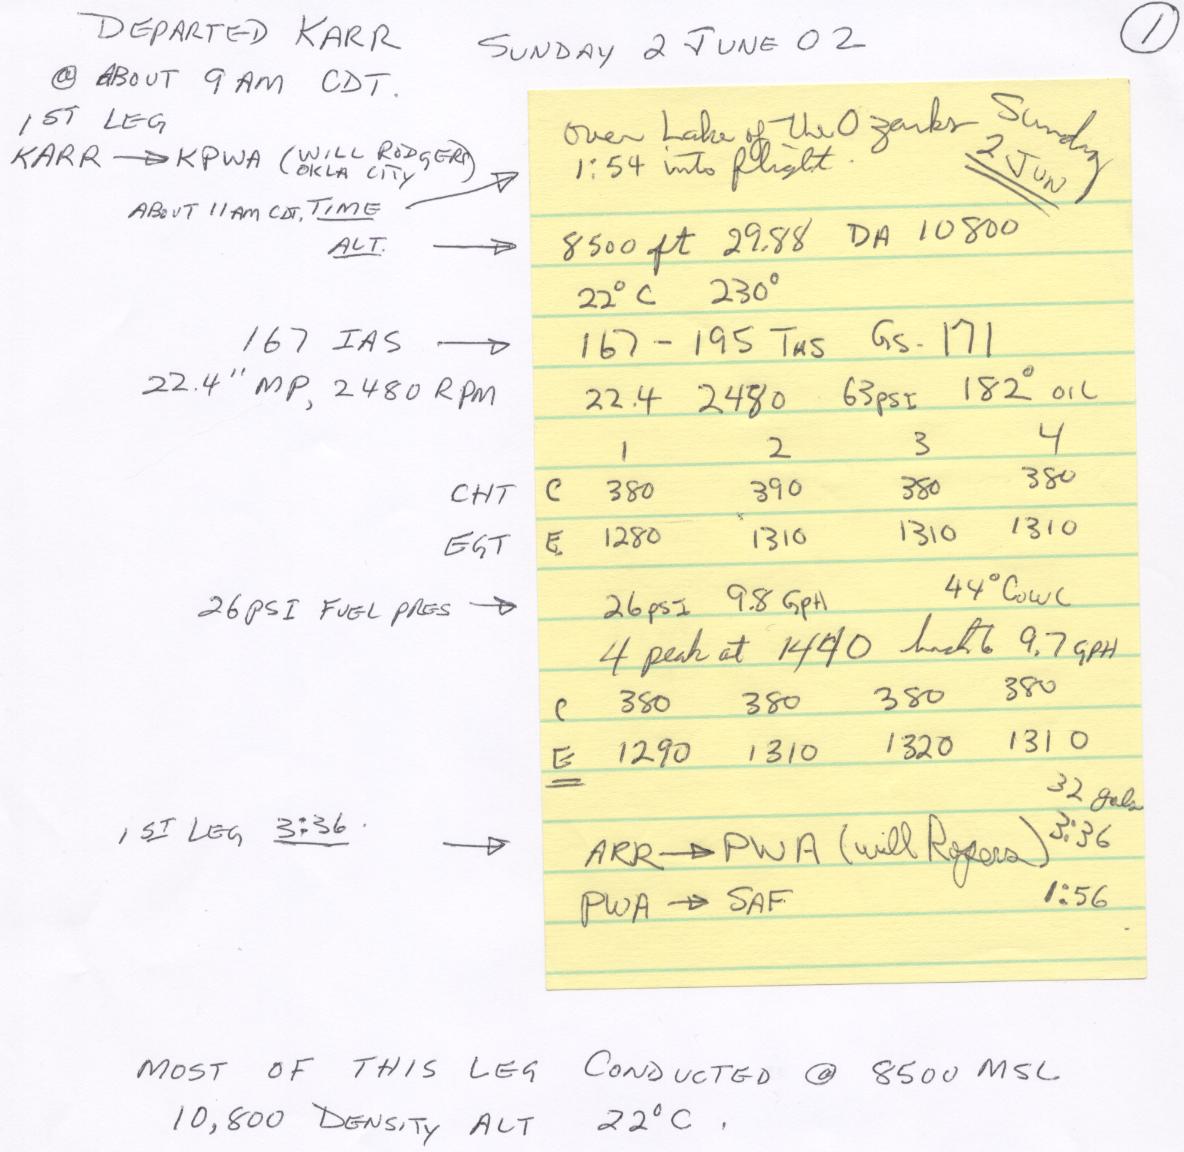 DEPARTED KARR SUNDAY 2 JUNE 02
1
@ ABOUT 9 AM CDT.
1ST LEG
KARR → KPWA (WILL RODGERS OKLA CITY)
ABOUT 11 AM CDT, TIME
ALT.
167 IAS →
22.4" MP, 2480 RPM
CHT
EGT
26 PSI FUEL PRES →
1ST LEG 3:36. →
over Lake of the Ozarks Sunday
1:54 into flight. 2 JUN
8500 ft 29.88 DA 10800
22°C 230°
167 - 195 TAS GS- 171
22.4 2480 63psi 182° OIL
1 2 3 4
C 380 390 380 380
E 1280 1310 1310 1310
26psi 9.8 GPH 44° COWL
4 peak at 1440 back to 9.7 GPH
C 380 380 380 380
E 1290 1310 1320 1310
32 gals
ARR → PWA (will Rogers) 3:36
PWA → SAF 1:56
MOST OF THIS LEG CONDUCTED @ 8500 MSL
10,800 DENSITY ALT 22°C.